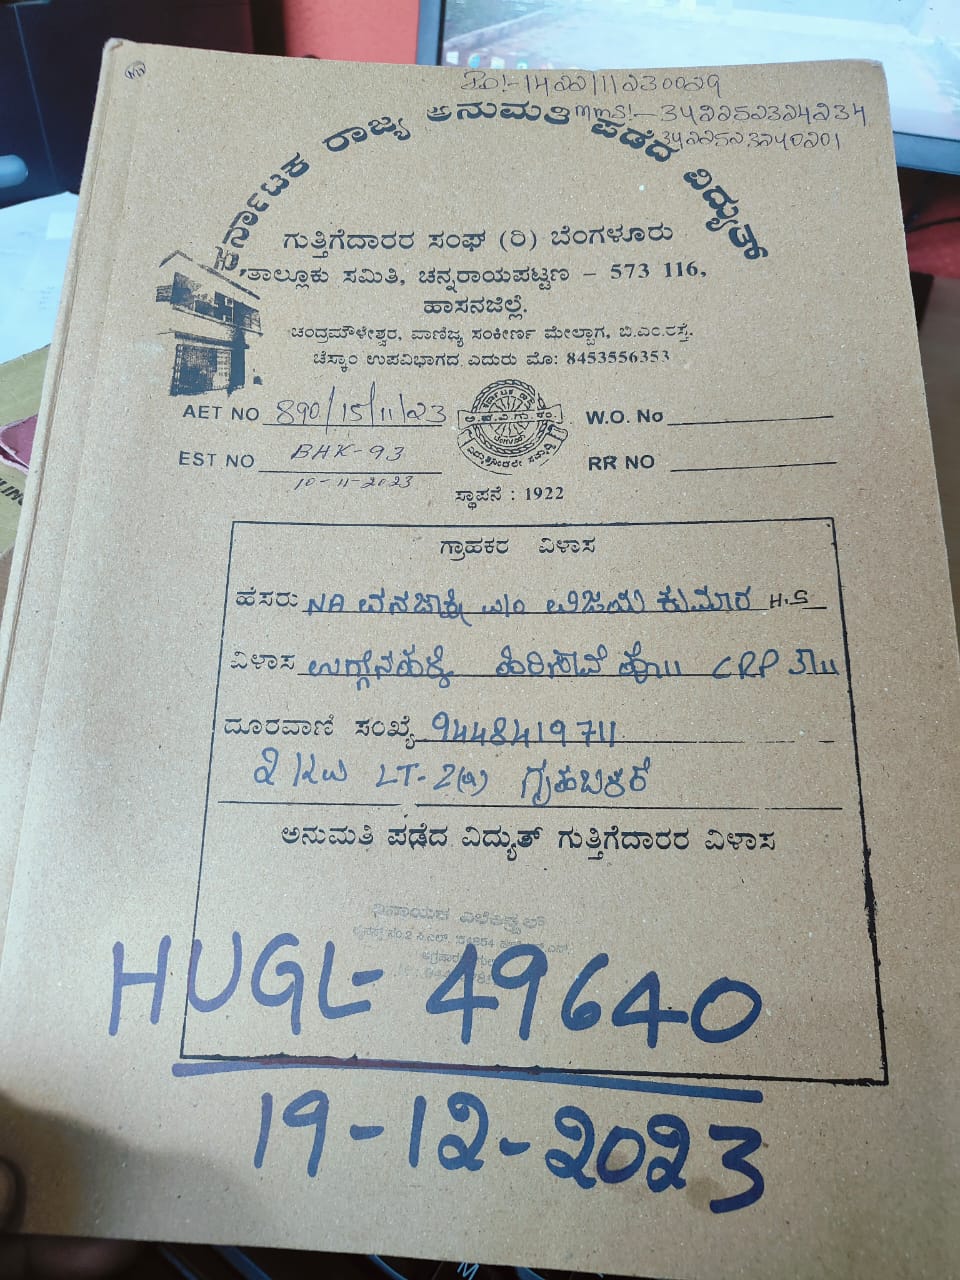 ID:-1422111230029
MMS:-342252324234
3422523240201
ಕರ್ನಾಟಕ ರಾಜ್ಯ ಅನುಮತಿ ಪಡೆದ ವಿದ್ಯುತ್
ಗುತ್ತಿಗೆದಾರರ ಸಂಘ (ರಿ) ಬೆಂಗಳೂರು
ತಾಲ್ಲೂಕು ಸಮಿತಿ, ಚನ್ನರಾಯಪಟ್ಟಣ – 573 116,
ಹಾಸನಜಿಲ್ಲೆ.
ಚಂದ್ರಮೌಳೇಶ್ವರ, ವಾಣಿಜ್ಯ ಸಂಕೀರ್ಣ ಮೇಲ್ಭಾಗ, ಬಿ.ಎಂ.ರಸ್ತೆ.
ಚೆಸ್ಕಾಂ ಉಪವಿಭಾಗದ ಎದುರು ಮೊ: 8453556353
AET NO 890/15/11/23 W.O. No
EST NO BHK-93 RR NO
10-11-2023
ಸ್ಥಾಪನೆ : 1922
ಗ್ರಾಹಕರ ವಿಳಾಸ
ಹೆಸರು ವನಜಾಕ್ಷಿ ವಿಜಯ ಕುಮಾರ H.S
ವಿಳಾಸ ಹಿರಿಸಾವೆ ಹೋ॥ CRP ತಾ॥
ದೂರವಾಣಿ ಸಂಖ್ಯೆ 9448419711
2 KW LT-2(a) ಗೃಹಬಳಕೆ
ಅನುಮತಿ ಪಡೆದ ವಿದ್ಯುತ್ ಗುತ್ತಿಗೆದಾರರ ವಿಳಾಸ
HUGL- 49640
19-12-2023